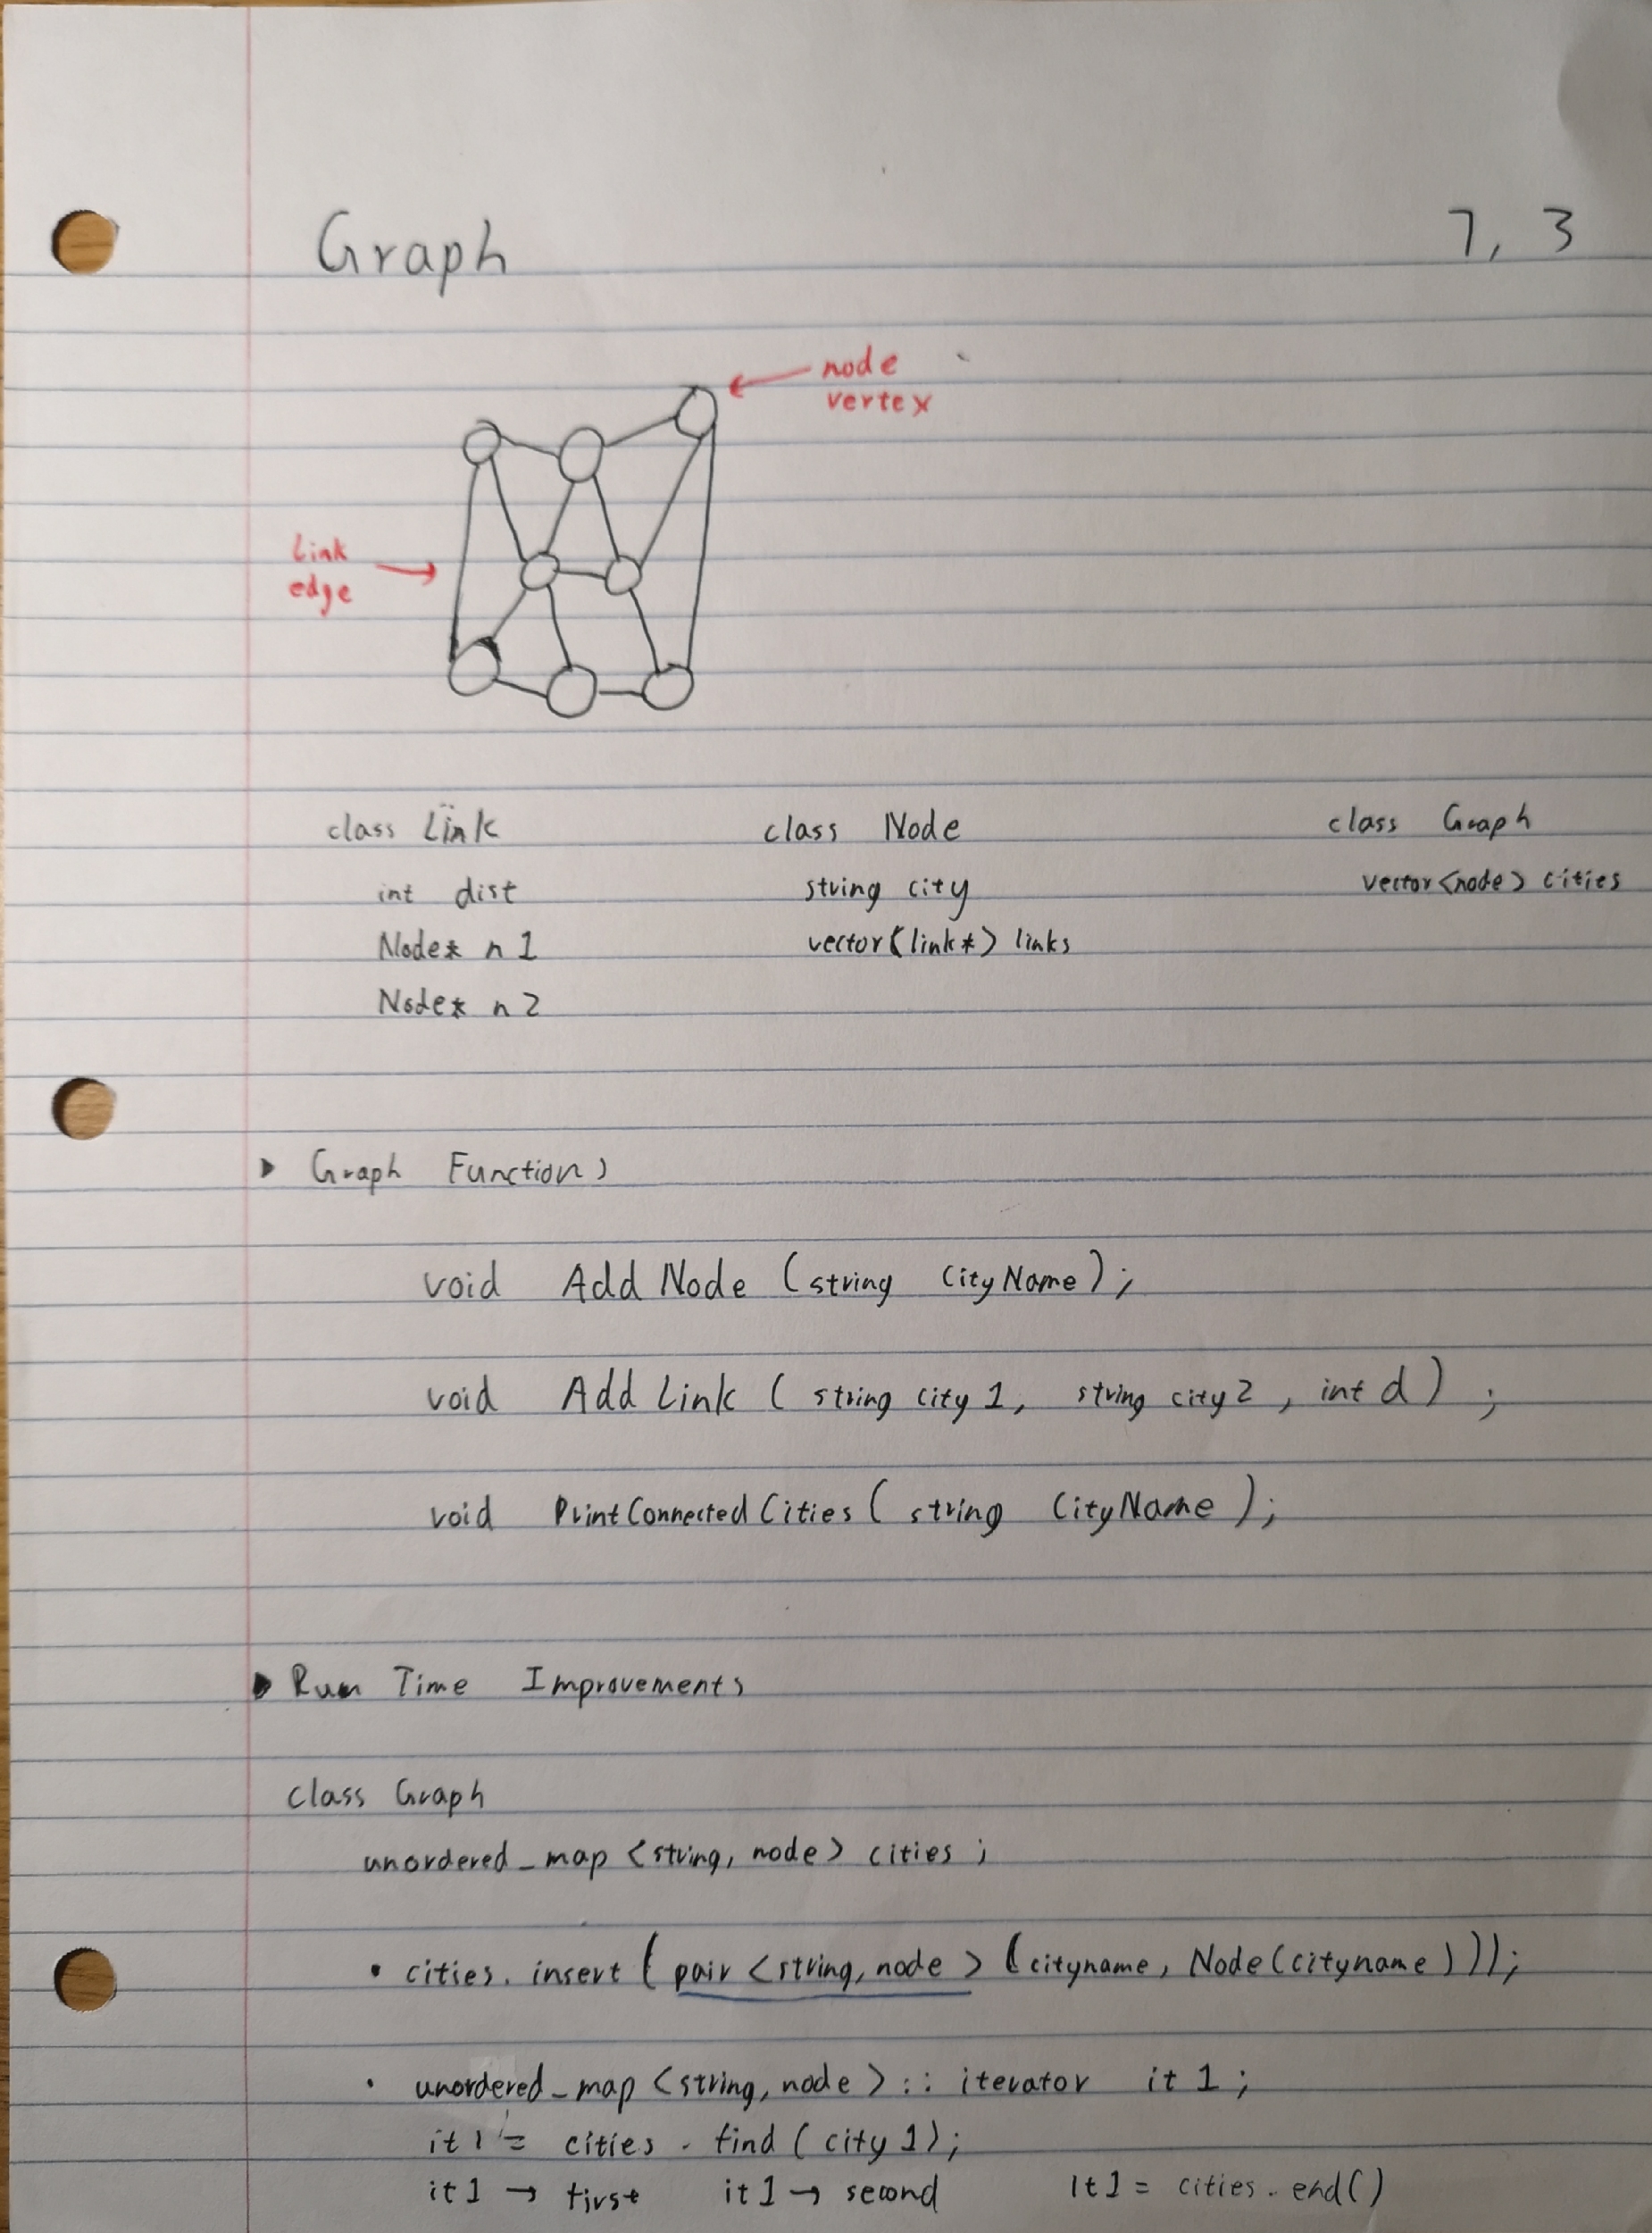 Graph 7, 3
node
vertex
Link
edge
class Link class Node class Graph
int dist string city vector<node> cities
Node* n1 vector<link*> links
Node* n2
Graph Functions
void AddNode (string CityName);
void AddLink ( string city1, string city2, int d) ;
void PrintConnectedCities ( string CityName );
Run Time Improvements
class Graph
unordered_map <string, node> cities ;
• cities. insert ( pair <string, node > (cityname, Node(cityname)));
• unordered_map <string, node> :: iterator it1 ;
it1 = cities . find ( city1);
it1 → first it1 → second It1 = cities . end()